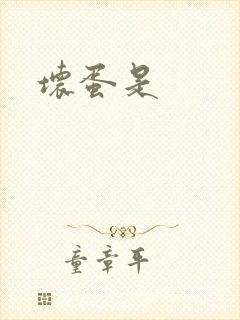 壞蛋是
童章平